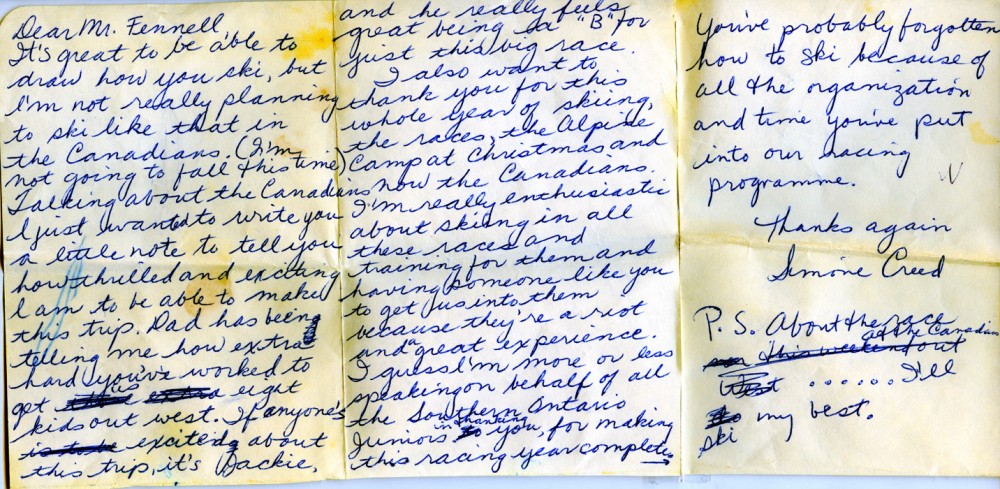 Dear Mr. Fennell,
It's great to be able to
draw how you ski, but
I'm not really planning
to ski like that in
the Canadians. (I'm
not going to fail this time)
Talking about the Canadians
I just wanted to write you
a little note to tell you
how thrilled and exciting
I am to be able to make
this trip. Dad has been
telling me how extra
hard you've worked to
get this eight
kids out west. If anyone's
excited about
this trip, it's Jackie,
and he really feels
great being a "B" for
just this big race.
I also want to
thank you for this
whole year of skiing,
the races, the Alpine
Camp at Christmas and
now the Canadians.
I'm really enthusiastic
about skiing in all
these races and
training for them and
having someone like you
to get us into them
because they're a riot
and a great experience.
I guess I'm more or less
speaking on behalf of all
the Southern Ontario
Juniors in thanking you, for making
this racing year complete.
You've probably forgotten
how to ski because of
all the organization
and time you've put
into our racing
programme.
Thanks again
Simone Creed
P.S. About the race
at the Canadians
this weekend out
West ...... I'll
ski my best.